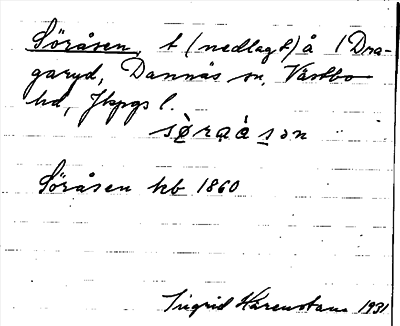 Söråsen, t (nedlagt) å 1 Dra-
garyd, Dannäs sn, Västbo
hd, Jkpgs l.
sø̀raà sən
Söråsen hb 1860
Ingrid Härenstam 1931